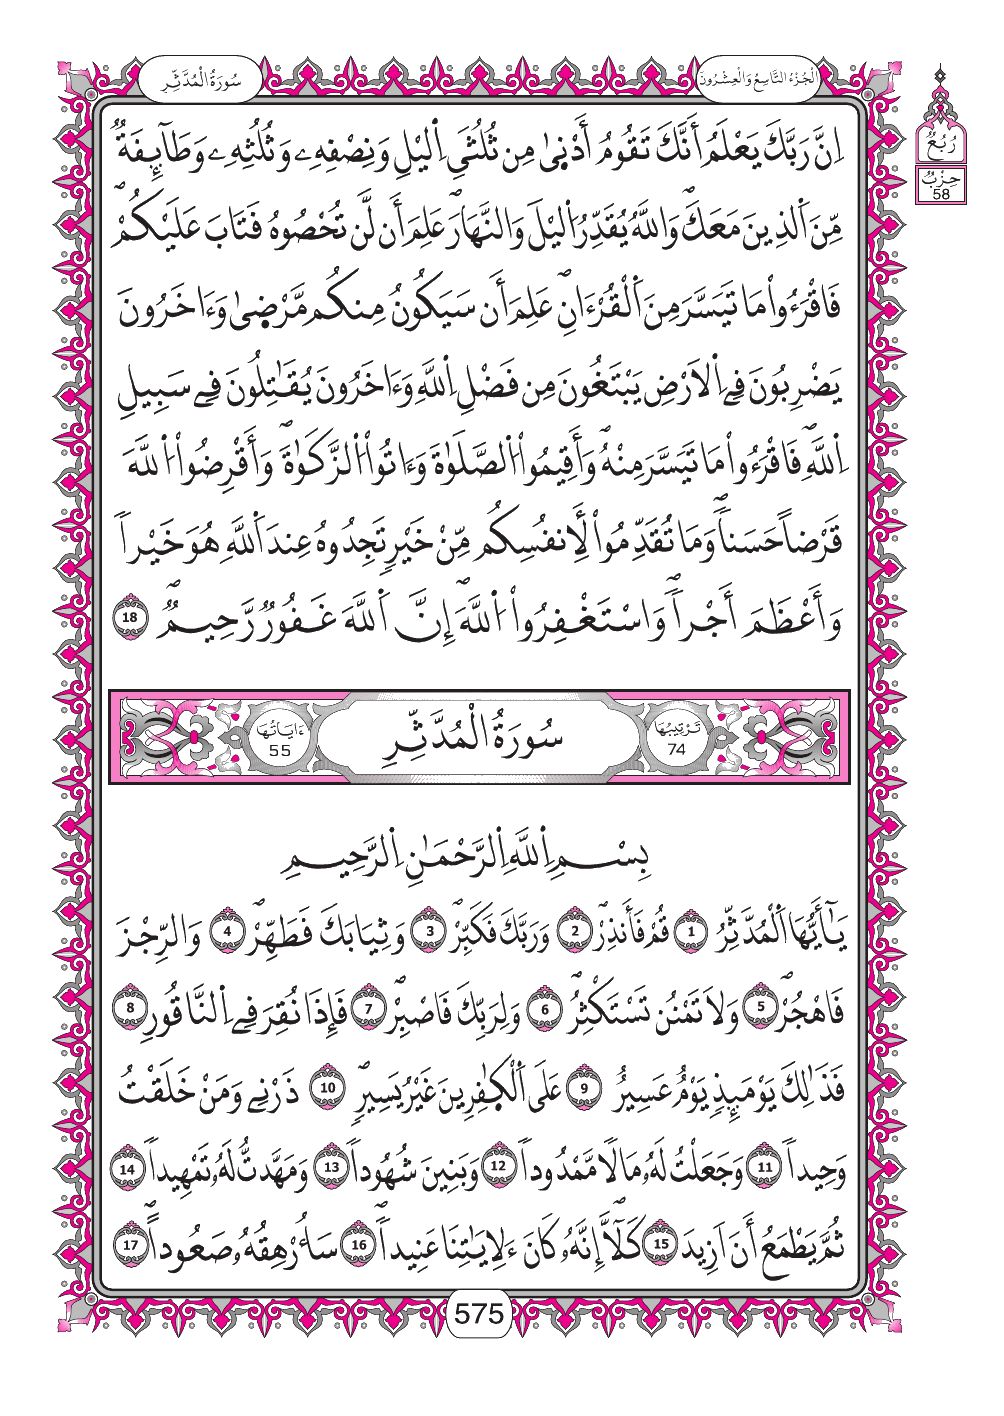 سُورَةُ الْمُدَّثِّرِ
الْجُزْءُ التَّاسِعُ وَالْعِشْرُونَ
رُبُعُ
حِزْبُ
58
اِنَّ رَبَّكَ يَعْلَمُ أَنَّكَ تَقُومُ أَدْنۭيٰ مِن ثُلُثَيِ اِ۬ليْلِ وَنِصْفِهِۦ وَثُلُثِهِۦ وَطَآئِفَةٞ
مِّنَ اَ۬لذِينَ مَعَكَۖ وَاللَّهُ يُقَدِّرُ اُ۬ليْلَ وَالنَّهَارَۖ عَلِمَ أَن لَّن تُحْصُوهُ فَتَابَ عَلَيْكُمْۖ
فَاقْرَءُواْ مَا تَيَسَّرَ مِنَ اَ۬لْقُرْءَانِۖ عَلِمَ أَن سَيَكُونُ مِنكُم مَّرْضۭيٰ وَءَاخَرُونَ
يَضْرِبُونَ فِے اِ۬لَارْضِ يَبْتَغُونَ مِن فَضْلِ اِ۬للَّهِ وَءَاخَرُونَ يُقَٰتِلُونَ فِے سَبِيلِ
اِ۬للَّهِۖ فَاقْرَءُواْ مَا تَيَسَّرَ مِنْهُۖ وَأَقِيمُواْ اُ۬لصَّلَوٰةَ وَءَاتُواْ اُ۬لزَّكَوٰةَۖ وَأَقْرِضُواْ اُ۬للَّهَ
قَرْضاً حَسَناٗۖ وَمَا تُقَدِّمُواْ لِأَنفُسِكُم مِّنْ خَيْرٖ تَجِدُوهُ عِندَ اَ۬للَّهِ هُوَ خَيْراٗ
وَأَعْظَمَ أَجْراٗۖ وَاسْتَغْفِرُواْ اُ۬للَّهَۖ إِنَّ اَ۬للَّهَ غَفُورٞ رَّحِيمٞۖ 18
تَرْتِيبُهَا 74 سُورَةُ الْمُدَّثِّرِ ءَايَاتُهَا 55
بِسْمِ اِ۬للَّهِ اِ۬لرَّحْمَٰنِ اِ۬لرَّحِيمِ
يَٰٓأَيُّهَا اَ۬لْمُدَّثِّرُ 1 قُمْ فَأَنذِرْۖ 2 وَرَبَّكَ فَكَبِّرْۖ 3 وَثِيَابَكَ فَطَهِّرْۖ 4 وَالرِّجْزَ
فَاهْجُرْۖ 5 وَلَا تَمْنُن تَسْتَكْثِرُۖ 6 وَلِرَبِّكَ فَاصْبِرْۖ 7 فَإِذَا نُقِرَ فِے اِ۬لنَّاقُورِ 8
فَذَٰلِكَ يَوْمَئِذٖ يَوْمٌ عَسِيرٌ 9 عَلَى اَ۬لْكٰ۪فِرِينَ غَيْرُ يَسِيرٖۖ 10 ذَرْنِے وَمَنْ خَلَقْتُ
وَحِيداٗۖ 11 وَجَعَلْتُ لَهُۥ مَالاٗ مَّمْدُوداٗۖ 12 وَبَنِينَ شُهُوداٗۖ 13 وَمَهَّدتُّ لَهُۥ تَمْهِيداٗۖ 14
ثُمَّ يَطْمَعُ أَنَ اَزِيدَ 15 كَلَّآۖ إِنَّهُۥ كَانَ ءَلِايَٰتِنَا عَنِيداٗۖ 16 سَأُرْهِقُهُۥ صَعُوداًۖ 17
575